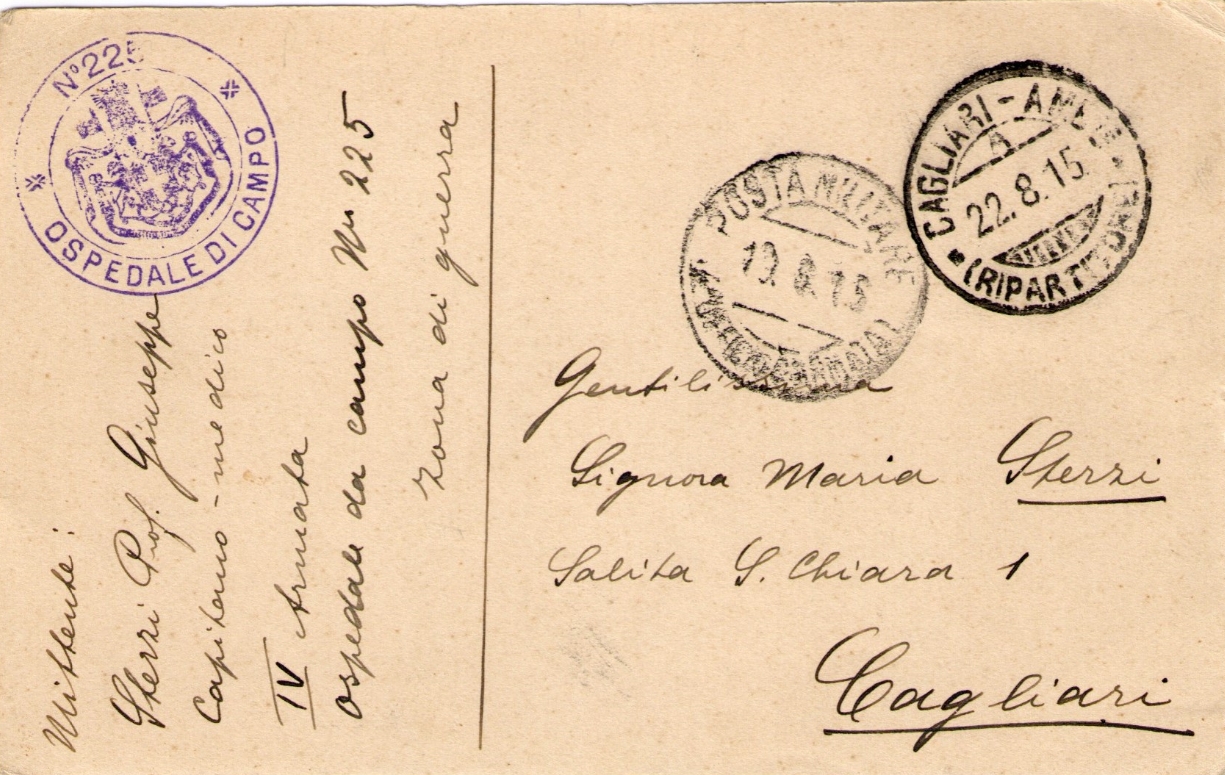 Nº 225
OSPEDALE DI CAMPO
Mittente:
Sterzi Prof. Giuseppe
Capitano-medico
IV Armata
Ospedale da campo Nº 225
zona di guerra
POSTA MILITARE
19.8.15
CAGLIARI-
A
22.8.15
Gentilissima
Signora Maria Sterzi
Salita S. Chiara 1
Cagliari